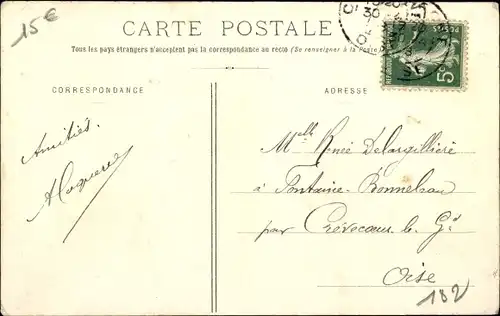 15€
CARTE POSTALE
Tous les pays étrangers n'acceptent pas la correspondance au recto (Se renseigner à la Poste)
CORRESPONDANCE
ADRESSE
Amitiés.
Melle Renée Delargillière
à Fontaine-Bonneleau
par Crèvecoeur le Gd
Oise
182